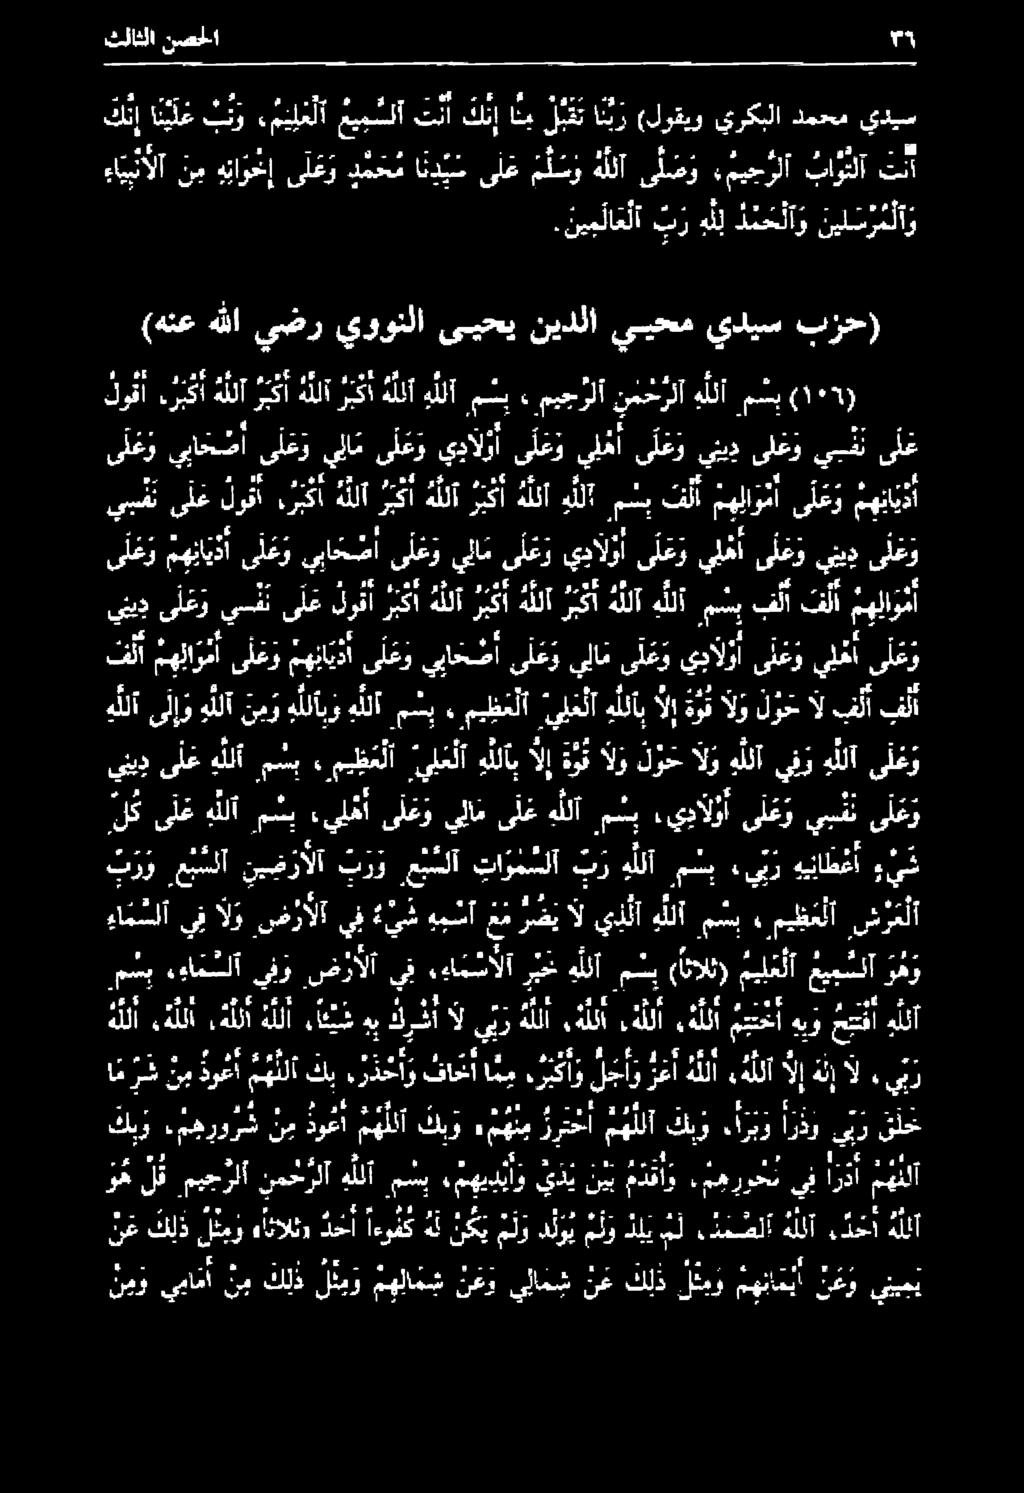 ٣٦ الحصن الثالث
سيدي محمد البكري ويقول) رَبَّنَا تَقَبَّلْ مِنَّا إِنَّكَ أَنْتَ ٱلسَّمِيعُ ٱلْعَلِيمُ، وَتُبْ عَلَيْنَا إِنَّكَ
أَنْتَ ٱلتَّوَّابُ ٱلرَّحِيمُ، وَصَلَّى ٱللَّهُ وَسَلَّمَ عَلَى سَيِّدِنَا مُحَمَّدٍ وَعَلَى إِخْوَانِهِ مِنَ ٱلأَنْبِيَاءِ
وَٱلْمُرْسَلِينَ وَٱلْحَمْدُ لِلَّهِ رَبِّ ٱلْعَالَمِينَ.
(حزب سيدي محيي الدين يحيى النووي رضي الله عنه)
(١٠٦) بِسْمِ ٱللَّهِ ٱلرَّحْمٰنِ ٱلرَّحِيمِ، بِسْمِ ٱللَّهِ ٱللَّهُ أَكْبَرُ ٱللَّهُ أَكْبَرُ ٱللَّهُ أَكْبَرُ، أَقُولُ
عَلَى نَفْسِي وَعَلَى دِينِي وَعَلَى أَهْلِي وَعَلَى أَوْلاَدِي وَعَلَى مَالِي وَعَلَى أَصْحَابِي وَعَلَى
أَدْيَانِهِمْ وَعَلَى أَمْوَالِهِمْ أَلْفَ بِسْمِ ٱللَّهِ ٱللَّهُ أَكْبَرُ ٱللَّهُ أَكْبَرُ ٱللَّهُ أَكْبَرُ، أَقُولُ عَلَى نَفْسِي
وَعَلَى دِينِي وَعَلَى أَهْلِي وَعَلَى أَوْلاَدِي وَعَلَى مَالِي وَعَلَى أَصْحَابِي وَعَلَى أَدْيَانِهِمْ وَعَلَى
أَمْوَالِهِمْ أَلْفَ أَلْفِ بِسْمِ ٱللَّهِ ٱللَّهُ أَكْبَرُ ٱللَّهُ أَكْبَرُ ٱللَّهُ أَكْبَرُ أَقُولُ عَلَى نَفْسِي وَعَلَى دِينِي
وَعَلَى أَهْلِي وَعَلَى أَوْلاَدِي وَعَلَى مَالِي وَعَلَى أَصْحَابِي وَعَلَى أَدْيَانِهِمْ وَعَلَى أَمْوَالِهِمْ أَلْفَ
أَلْفِ أَلْفِ لاَ حَوْلَ وَلاَ قُوَّةَ إِلاَّ بِٱللَّهِ ٱلْعَلِيِّ ٱلْعَظِيمِ، بِسْمِ ٱللَّهِ وَبِٱللَّهِ وَمِنَ ٱللَّهِ وَإِلَى ٱللَّهِ
وَعَلَى ٱللَّهِ وَفِي ٱللَّهِ وَلاَ حَوْلَ وَلاَ قُوَّةَ إِلاَّ بِٱللَّهِ ٱلْعَلِيِّ ٱلْعَظِيمِ، بِسْمِ ٱللَّهِ عَلَى دِينِي
وَعَلَى نَفْسِي وَعَلَى أَوْلاَدِي، بِسْمِ ٱللَّهِ عَلَى مَالِي وَعَلَى أَهْلِي، بِسْمِ ٱللَّهِ عَلَى كُلِّ
شَيْءٍ أَعْطَانِيهِ رَبِّي، بِسْمِ ٱللَّهِ رَبِّ ٱلسَّمٰوَاتِ ٱلسَّبْعِ وَرَبِّ ٱلأَرَضِينَ ٱلسَّبْعِ وَرَبِّ
ٱلْعَرْشِ ٱلْعَظِيمِ، بِسْمِ ٱللَّهِ ٱلَّذِي لاَ يَضُرُّ مَعَ ٱسْمِهِ شَيْءٌ فِي ٱلأَرْضِ وَلاَ فِي ٱلسَّمَاءِ
وَهُوَ ٱلسَّمِيعُ ٱلْعَلِيمُ (ثلاثاً) بِسْمِ ٱللَّهِ خَيْرِ ٱلأَسْمَاءِ، فِي ٱلأَرْضِ وَفِي ٱلسَّمَاءِ، بِسْمِ
ٱللَّهِ أَفْتَتِحُ وَبِهِ أَخْتَتِمُ ٱللَّهُ، ٱللَّهُ، ٱللَّهُ، ٱللَّهُ رَبِّي لاَ أُشْرِكُ بِهِ شَيْئاً، ٱللَّهُ ٱللَّهُ، ٱللَّهُ، ٱللَّهُ
رَبِّي، لاَ إِلٰهَ إِلاَّ ٱللَّهُ، ٱللَّهُ أَعَزُّ وَأَجَلُّ وَأَكْبَرُ، مِمَّا أَخَافُ وَأَحْذَرُ، بِكَ ٱللَّهُمَّ أَعُوذُ مِنْ شَرِّ مَا
خَلَقَ رَبِّي وَذَرَأَ وَبَرَأَ، وَبِكَ ٱللَّهُمَّ أَحْتَرِزُ مِنْهُمْ، وَبِكَ ٱللَّهُمَّ أَعُوذُ مِنْ شُرُورِهِمْ، وَبِكَ
ٱللَّهُمَّ أَدْرَأُ فِي نُحُورِهِمْ، وَأُقَدِّمُ بَيْنَ يَدَيَّ وَأَيْدِيهِمْ، بِسْمِ ٱللَّهِ ٱلرَّحْمٰنِ ٱلرَّحِيمِ قُلْ هُوَ
ٱللَّهُ أَحَدٌ، ٱللَّهُ ٱلصَّمَدُ، لَمْ يَلِدْ وَلَمْ يُولَدْ وَلَمْ يَكُنْ لَهُ كُفُوءاً أَحَدٌ «ثلاثاً» وَمِثْلُ ذٰلِكَ عَنْ
يَمِينِي وَعَنْ أَيْمَانِهِمْ وَمِثْلُ ذٰلِكَ عَنْ شِمَالِي وَعَنْ شِمَالِهِمْ وَمِثْلُ ذٰلِكَ مِنْ أَمَامِي وَمِنْ